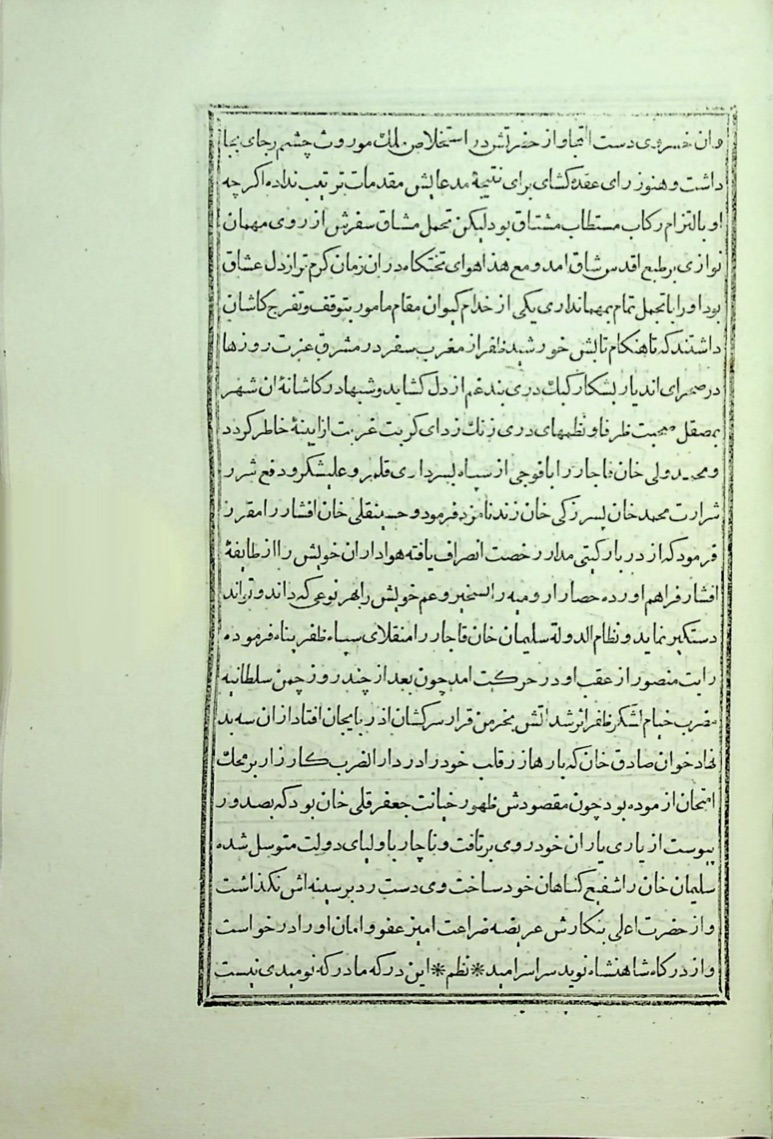 وان خسروی دست التجا و از حضرتش در استخلاص ملك موروث چشم رجای بجا
داشت و هنوز رای عقده کشای برای نتیجهٔ مدعایش مقدمات ترتیب نداده اکرچه
او بالتزام رکاب مستطاب مشتاق بود لیکن تحمل مشاق سفرش از روی مهمان
نوازی بر طبع اقدس شاق امد و مع هذا هوای تختکاه دران زمان کرم تر از دل عشاق
بود او را با تجمل تمام بمهمانداری یکی از خدام کیوان مقام مامور بتوقف و تفرج کاشان
داشتند که تا هنکام تابش خورشید ظفر از مغرب سفر در مشرق عزت روزها
در صحرای اندیار بشکار کبك دری بند غم از دل کشاید و شبها در کاشانهٔ ان شهر
بصقل صحبت ظرفا و نظمهای دری زنك زدای کربت غربت از اینهٔ خاطر کردد
و محمد ولی خان قاجار را با فوجی از سپاه بسرداری قلمرو علیشکر و دفع شرر
شرارت محمد خان پسر زکی خان زند نامزد فرمود و حسینقلی خان افشار را مقرر
فرمود که از دربار کیتی مدار رخصت انصراف یافته هواداران خویش را از طایفهٔ
افشار فراهم اورده حصار ارومیه را تسخیر و عم خویش را بهر نوعی که داند و تواند
دستکیر نماید و نظام الدوله سلیمان خان قاجار را منقلای سپاه ظفر پناه فرموده
رایت منصور از عقب او در حرکت امد چون بعد از چند روز چمن سلطانیه
مضرب خیام لشکر ظفر اثر شد اتش بخرمن قرار سرکشان اذربایجان افتاد ازان سه بد
نهاد خوان صادق خان که بارها زر قلب خود را در دار الضرب کارزار بر محك
امتحان ازموده بود چون مقصودش ظهور خیانت جعفر قلی خان بود که بصدور
پیوست از یاری یاران خود روی برتافت و ناچار باولیای دولت متوسل شده
سلیمان خان را شفیع کناهان خود ساخت وی دست رد بر سینه اش نکذاشت
و از حضرت اعلی بنکارش عریضه ضراعت امیز عفو و امان او را درخواست
و از درکاه شاهنشاه نوید سراسر امید * نظم * این درکه ما درکه نومیدی نیست